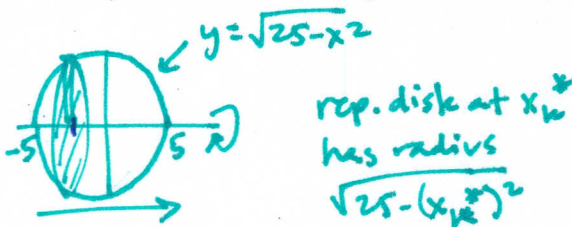 y = √25-x²
rep. disk at xₖ*
has radius
√25-(xₖ*)²
-5
5